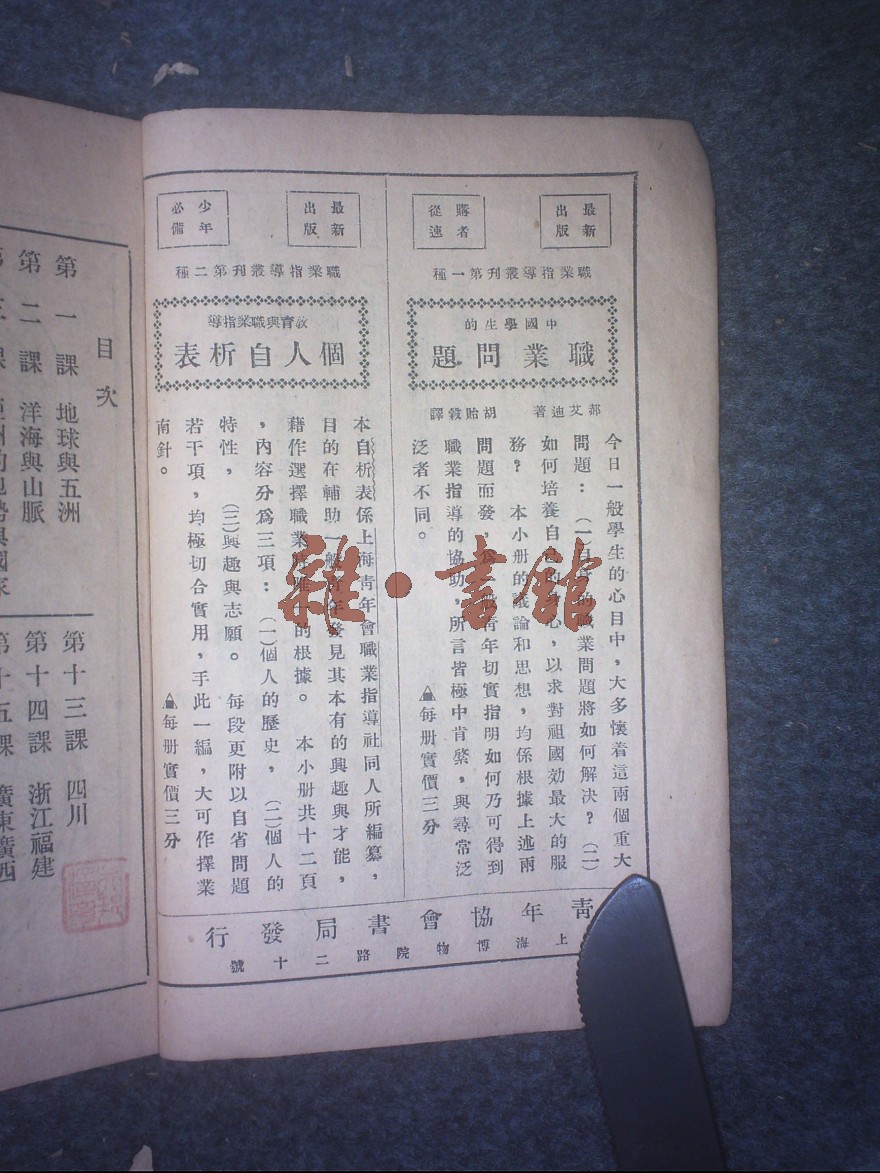 最新
出版
購者
從速
職業指導叢刊第一種
中國學生的
職業問題
郝艾迪著 胡貽穀譯
今日一般學生的心目中，大多懷着這兩個重大
問題：(一)自身的職業問題將如何解决？(二)
如何培養自己的心，以求對祖國効最大的服
務？ 本小册的議論和思想，均係根據上述兩
問題而發，青年切實指明如何乃可得到
職業指導的協助，所言皆極中肯綮，與尋常泛
泛者不同。
每册實價三分
最新
出版
少年
必備
職業指導叢刊第二種
敎育與職業指導
個人自析表
本自析表係上海靑年會職業指導社同人所編纂，
目的在輔助一般靑年發見其本有的興趣與才能，
藉作選擇職業的根據。 本小册共十二頁
，內容分爲三項：(一)個人的歷史，(二)個人的
特性，(三)興趣與志願。 每段更附以自省問題
若干項，均極切合實用，手此一編，大可作擇業
南針。
每册實價三分
靑年協會書局發行
上海博物院路二十號
目次
第一課 地球與五洲
第二課 洋海與山脈
第十三課 四川
第十四課 浙江福建
第十五課 廣東廣西
雜·書館